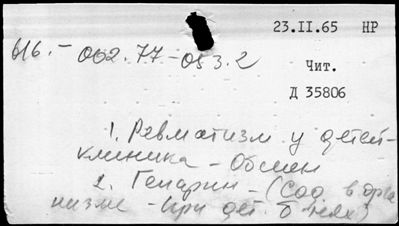 23.II.65 НР
616.-002.77-053.2
Чит.
Д 35806
1. Ревматизм у детей-
клиника - Обмен
2. Гепарин - (Сод. в орга
низме - при дет. б-нях)